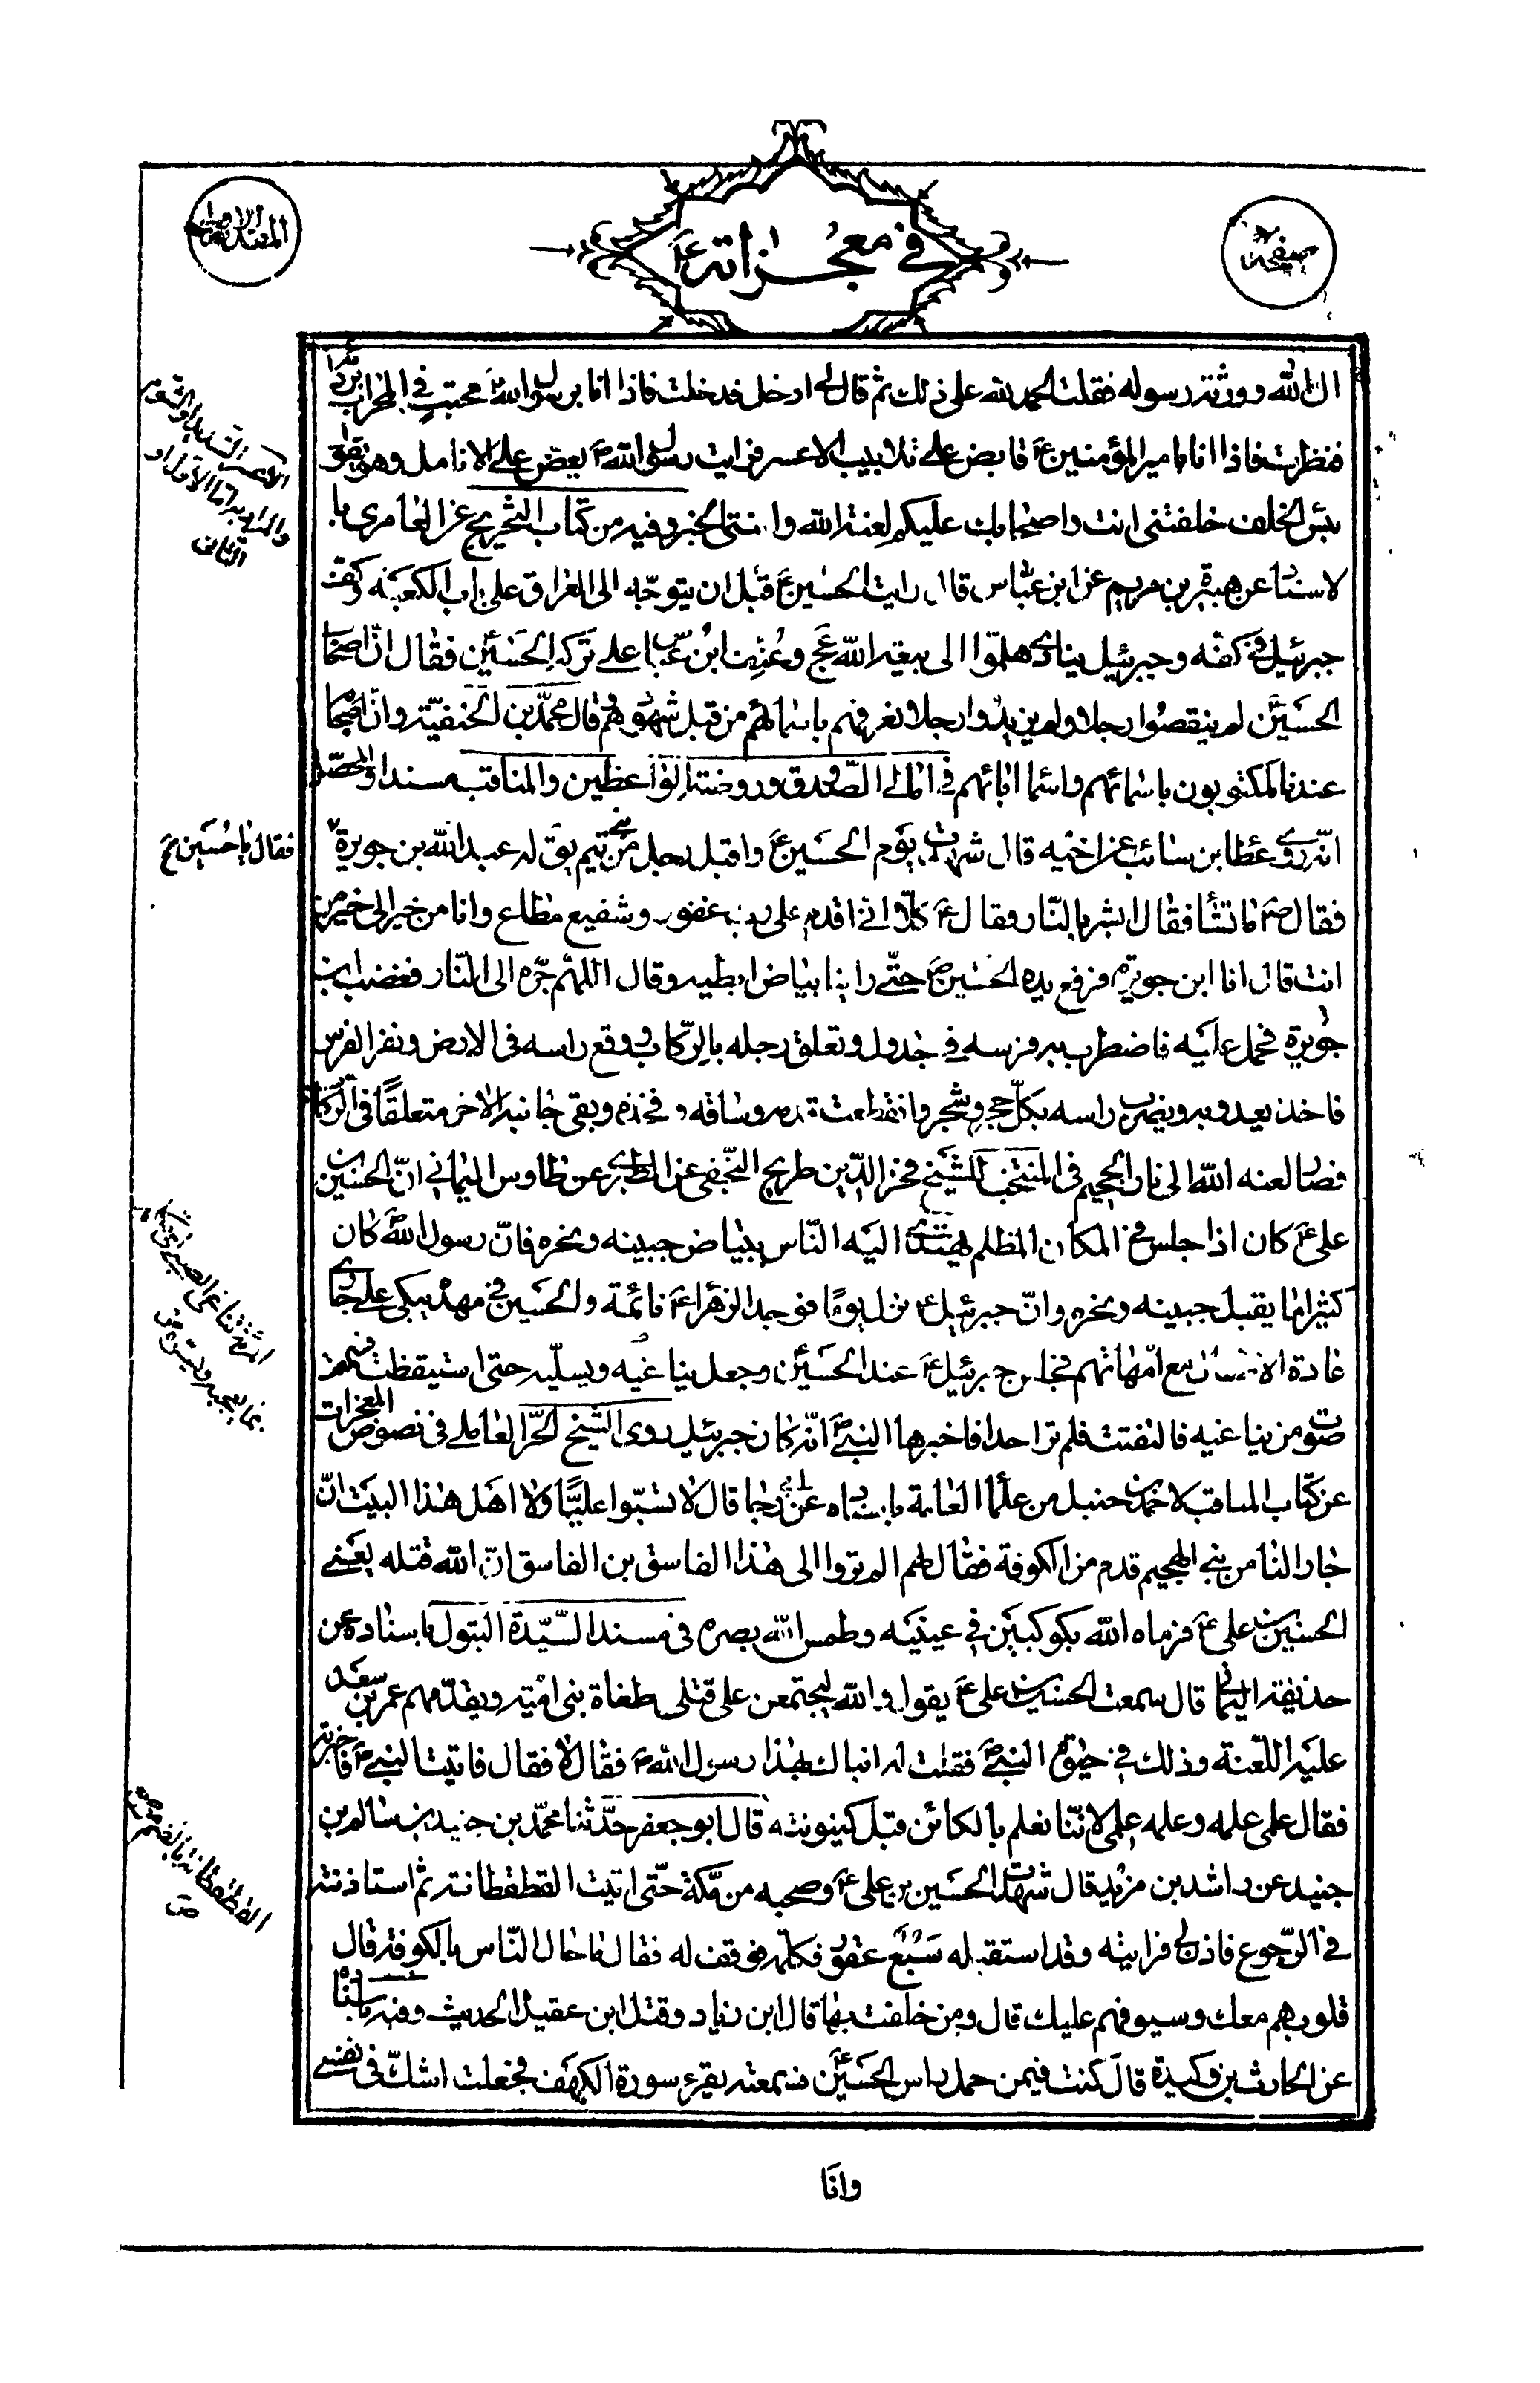 في معجزاته ع
صفحة
المقتل
ال الله وورثته رسوله فقلت الحمد لله على ذلك ثم قال لي ادخل فدخلت فاذا انا برسول الله ص محتب في المحراب بردائه
فنظرت فاذا انا بامير المؤمنين ع قابض على تلابيب الاعسر فرايت رسول الله ص يعض على الانامل وهو يقول
بئس الخلف خلفتنى انت واصحابك عليكم لعنة الله وانتهى الخبر وفيه من كتاب التخريج عن العامرى با
لاسناد عن هبيرة بن مريم عن ابن عباس قال رايت الحسين ع قبل ان يتوجّه الى العراق على باب الكعبة وكف
جبرئيل في كفه وجبرئيل ينادي هلمّوا الى بيعة الله عج وعُنِف ابنُ عبّاس على تركه الحسين فقال انّ اصحاب
الحسين لم ينقصوا رجلا ولم يزيدوا رجلا نعرفهم باسمائهم من قبل شهودهم قال محمّد بن الحنفيّة وانّ اصحابه
عندنا لمكتوبون باسمائهم واسماء ابائهم في امالي الصّدوق وروضة الواعظين والمناقب مسندا والمحصّل
انّه روى عطا بن سائب عن اخيه قال شهدت يوم الحسين ع واقبل رجل من بنى تيم يق له عبد الله بن جويرة
فقال يا حُسين ع
فقال ص ما تشأ فقال ابشر بالنّار وفقال ع كلّا اني اقدم على رب غفور وشفيع مطاع وانا من خير الى خير من
انت قال انا ابن جويرة فرفع يده الحسين ع حتّى راينا بياض ابطيه وقال اللهمّ جرّه الى النّار فغضب ابن
جويرة فحمل عليه فاضطرب به فرسه في جدول وتعلق رجله بالرّكاب ووقع راسه في الارض ونفر الفرس
فاخذ يعدو به ويضرب راسه بكلّ حجر وشجر وانقطعت قدمه وساقه وفخذه وبقى جانبه الاخر متعلقًا في الركاب
فصار لعنه الله الى نار الجحيم في المنتخب للشيخ فخر الدّين طريح النّجفي عن الطبري عن طاوس اليماني انّ الحسين بن
على ع كان اذا جلس في المكان المظلم يهتدى اليه النّاس ببياض جبينه ونحره فانّ رسول الله ص كان
كثيرا ما يقبل جبينه ونحره وانّ جبرئيل ع نزل يومًا فوجد الزهراء ع نائمة والحسين في مهده يبكى على جارى
عادة الاطفال مع امّهاتهم فجلس جبرئيل ع عند الحسين وجعل يناغيه ويسلّيه حتى استيقظت فسمعت
صوت من يناغيه فالتفتت فلم تر احدا فاخبرها النبي ص انّه كان جبرئيل روى الشيخ الحرّ العاملي في نصوص المعجزات
عن كتاب المناقب لاحمد بن حنبل من علماء العامة باسناده عن ابى رجا قال لا تسبّوا عليّا ولا اهل هذا البيت انّ
جارا لنا من بني الهجيم قدم من الكوفة فقال لهم الم تروا الى هذا الفاسق بن الفاسق انّ الله قتله يعني
الحسين بن على ع فرماه الله بكوكبين في عينيه وطمس الله بصره في مسند السّيّدة البتول باسناده عن
حذيفة اليماني قال سمعت الحسين بن على ع يقول والله ليجتمعن على قتلى طغاة بنى اميّة ويقدّمهم عمر بن سعد
عليه اللّعنة وذلك في حيوة النبي ص فقلت له انباك بهذا رسول الله ص فقال لا فقال فاتيت النبي ص فاخبرته
فقال على علمه وعلمه علمى لانّنا نعلم بالكائن قبل كينونته قال ابو جعفر حدّثنا محمّد بن جنيد بن سالم بن
جنيد عن راشد بن مزيد قال شهدت الحسين بن على ع وصحبه من مكّة حتّى اتيت القطقطانة ثم استاذنته
في الرّجوع فاذن لى فرايته وقد استقبله سَبُعٌ عقور فكلّمه فوقف له فقال ما حال النّاس بالكوفة قال
قلوبهم معك وسيوفهم عليك قال ومن خلفت بها قال ابن زياد وقتل ابن عقيل الحديث وفيه باسناده
عن الحارث بن وكيدة قال كنت فيمن حمل راس الحسين ع فسمعته يقرء سورة الكهف فجعلت اشكّ في نفسي
القطقطانة بالضم موضع
ص
وانا